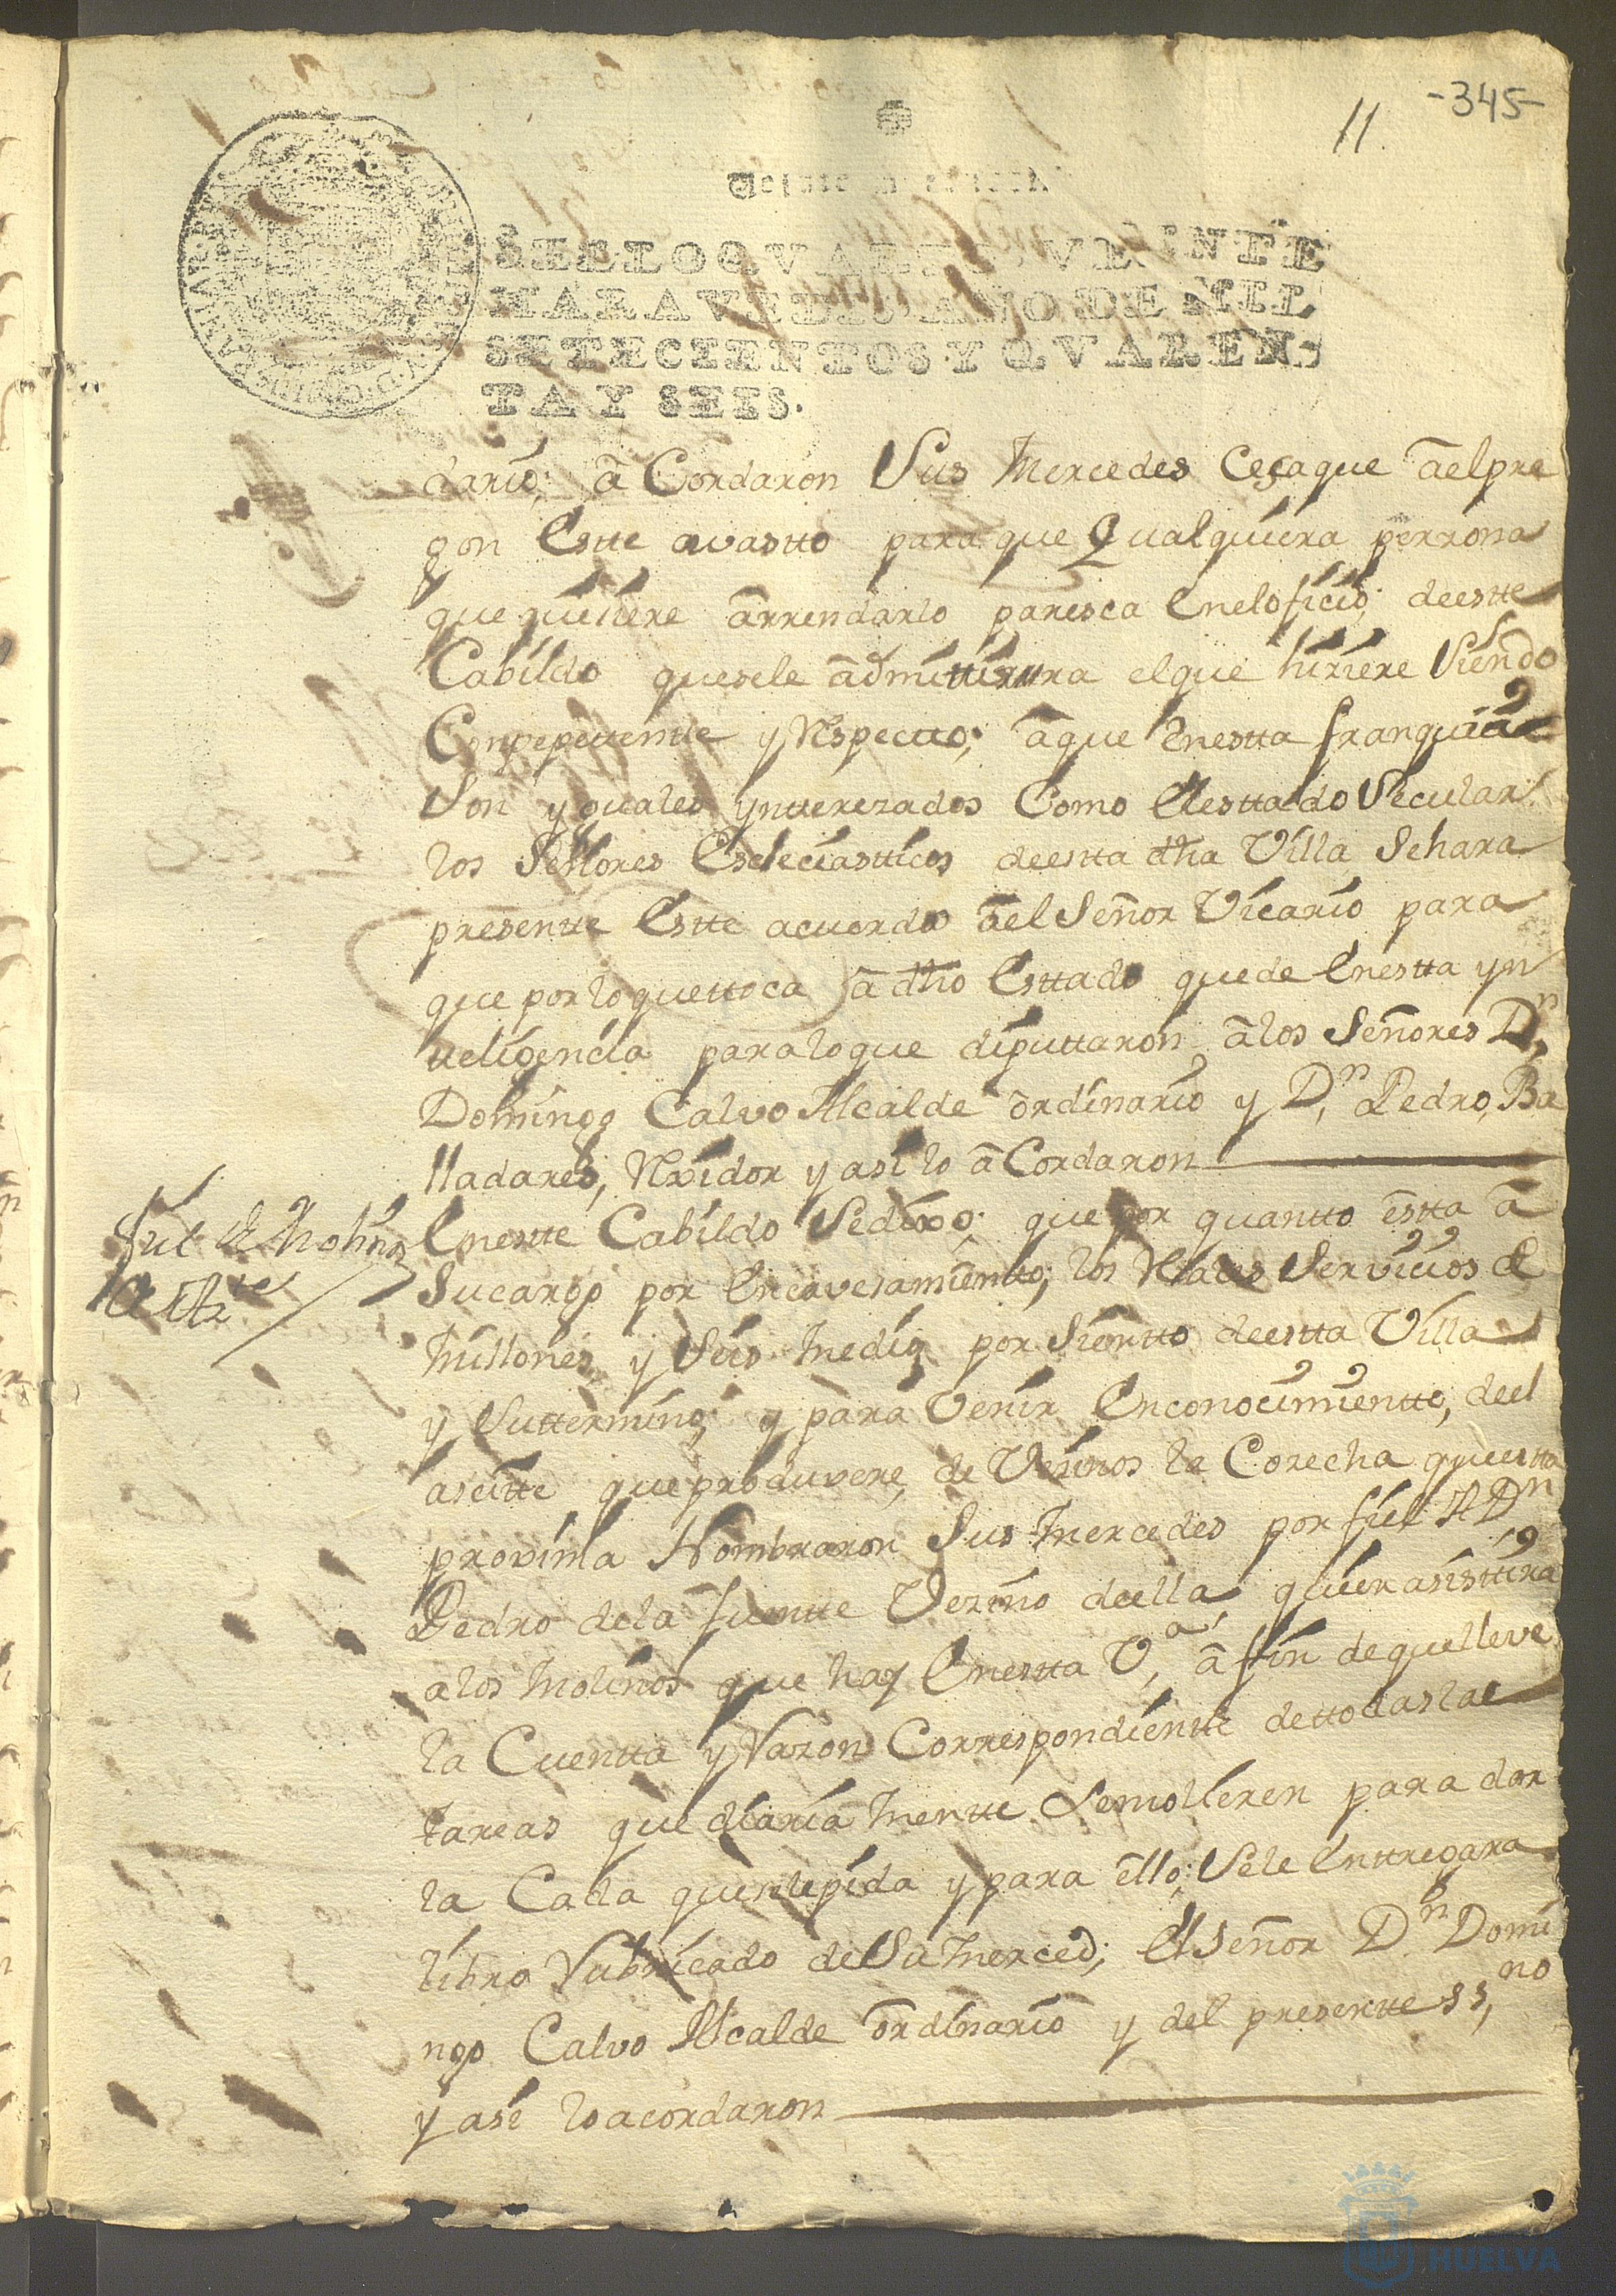 -345-
11
SELLO QVARTO, VEINTE
MARAVEDIS, AÑO DE MIL
SETECIENTOS Y QVAREN-
TA Y SEIS.
dario; â Cordaron Sus Mercedes Cesaque âelpre
gon Estte avastto para que Qualquiera perzona
que quiciere ârrendarlo paresca Eneloficio; deestte
Cabildo quesele âdmittira el que hiziere Siendo
Conpepettentte y Respectto; âque Enestta franquia
Son yguales yntterezados Como Elesttado Secular
los Señores Escleciastticos deestta dha Villa Sehara
presentte Estte acuerdo âel Señor Vicario para
que por lo quettoca â dho Esttado quede Enestta yn
tteligencia paraloque diputtaron âlos Señores Dn,
Domingo Calvo Alcalde ôrdinario y Dn, Pedro, Ba
lladares, Rexidor y asi lo â Cordaron
fiel de Molinos
de Azte
Enestte Cabildo Sedixo; que por quantto êstta â
Sucargo por Encavesamientto; los Rales Servicios de
Millones y Seis Medio por Sientto deestta Villa
y Suttermino; y para Venir Enconocimientto, deel
aseitte queproduxere, de Vezinos la Cosecha questta
proxima Nombraron Sus Mercedes por fiel A Dn
Pedro dela fuentte Vezino deella, quien asisttira
alos Molinos que hay Enestta Va, â fin dequelleve
la Cuentta y Razon Correspondientte dettodaslas
tareas que diaria Mentte Semolieren para dar
la Cada quesele pida y para êllo; Sele Enttregara
libro Rubricado deSuMerced; El Señor Dn Domi
ngo Calvo Alcalde ôrdinario y del presentte ss,no
y asi lo acordaron
HUELVA